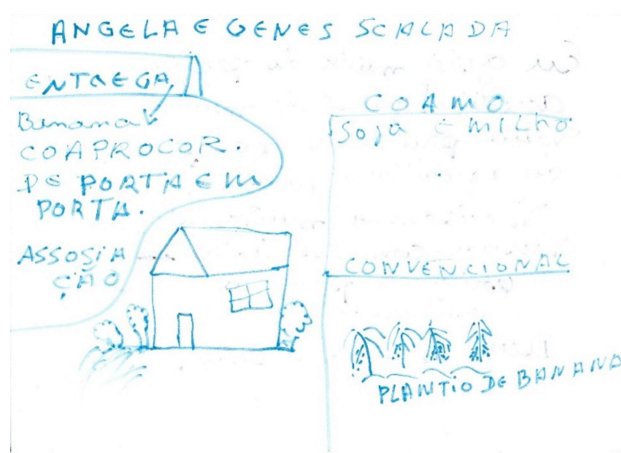 ANGELA E GENES SCALADA
ENTREGA
Banana
COAPROCOR.
DE PORTA EM
PORTA.
ASSOSIA
ÇÃO
COAMO
Soja E MILHO
CONVENCIONAL
PLANTIO DE BANANA